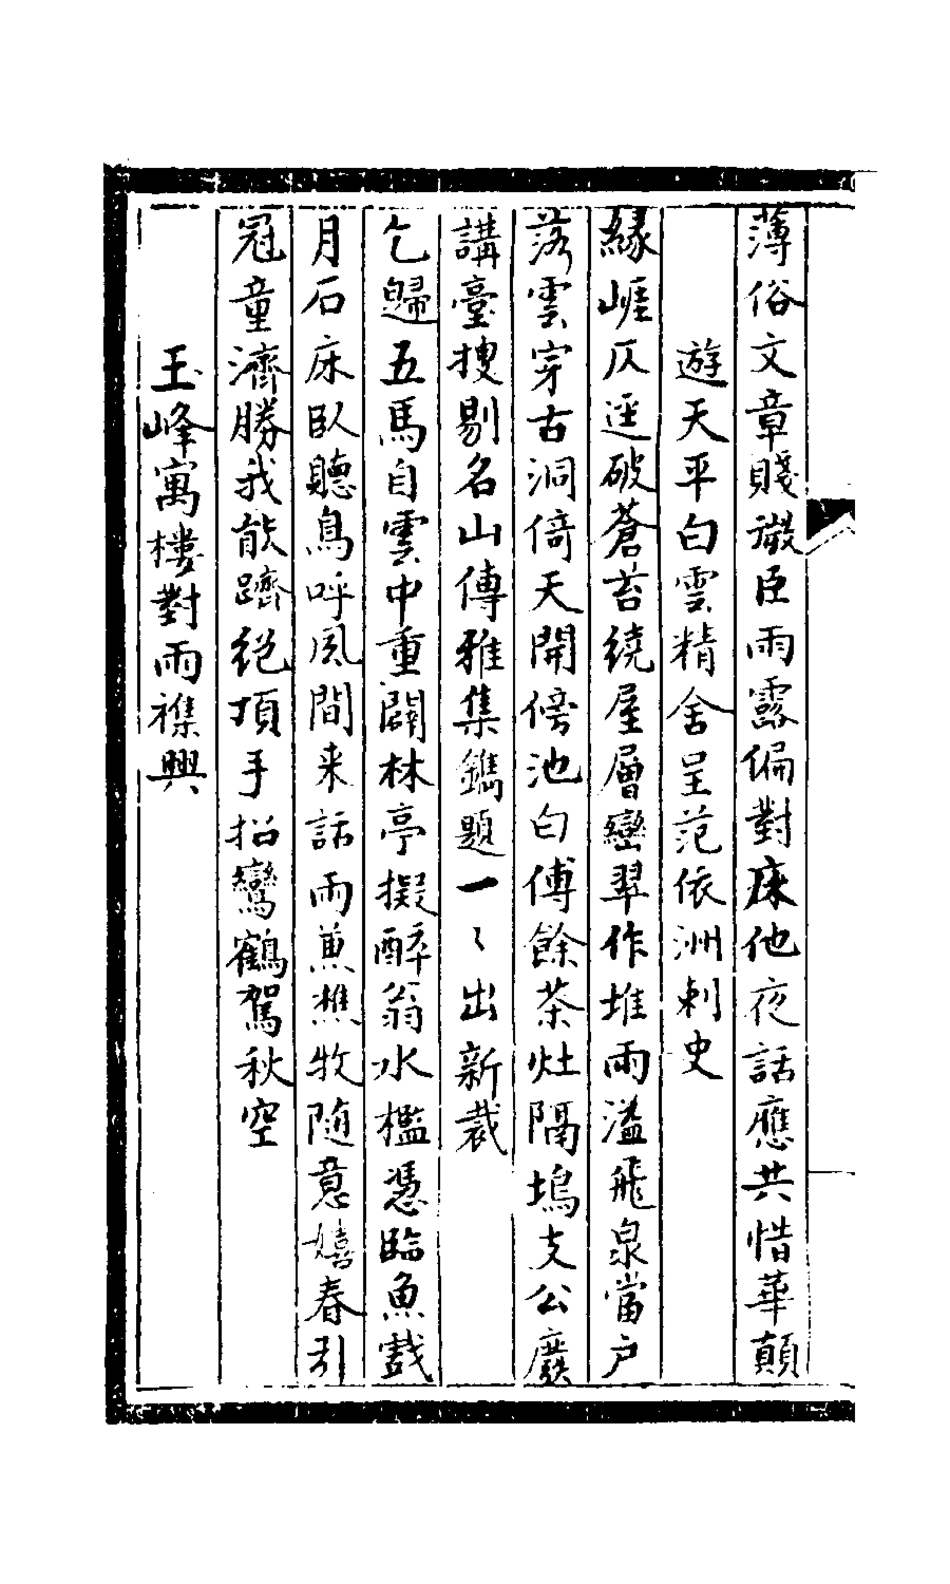 薄俗文章賤微臣雨露偏對床他夜話應共惜華顛
遊天平白雲精舍呈范依洲刺史
緣崕仄逕破蒼苔繞屋層巒翠作堆雨溢飛泉當户
落雲穿古洞倚天開傍池白傅餘茶灶隔塢支公廢
講臺搜剔名山傳雅集鐫題一〻出新裁
乞歸五馬自雲中重闢林亭擬醉翁水檻憑臨魚戲
月石床臥聽鳥呼風間来話雨兼樵牧随意嬉春引
冠童濟勝我能躋絕頂手招鸞鶴駕秋空
玉峰寓樓對雨襍興